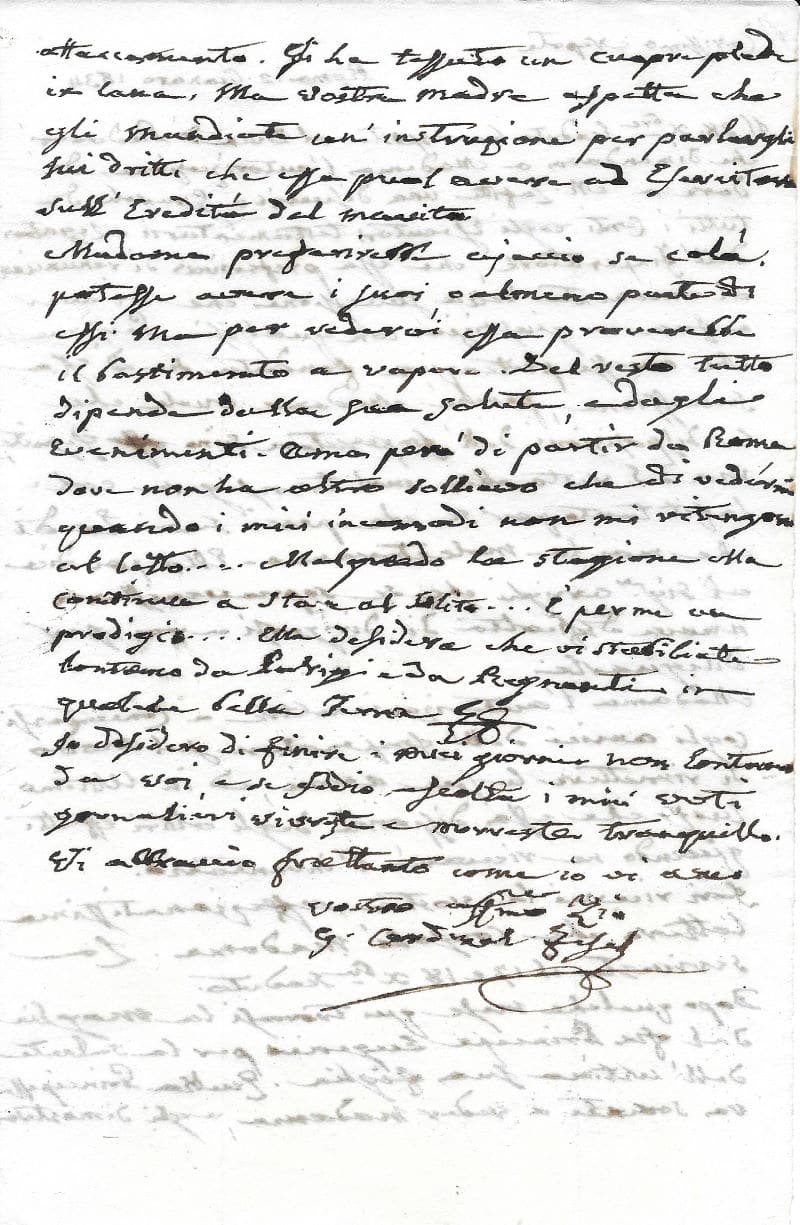 attaccamento. Gli ha tessuto un cuopre piede
in lana, Ma vostra madre aspetta che
gli mandiate un' instruzione per parlargli
sui dritti che essa puol avere ad Esercitare
sull' Eredità del marito
Madama preferirebbe Ajaccio se colà,
potesse avere i suoi o almeno parte di
essi. Ma per vedervi essa proverebbe
il bastimento a vapore. Del resto tutto
dipende dalla sua salute, e dagli
Evenimenti. Ama però di partir da Roma
dove non ha altro sollievo che di vedermi
quando i miei incomodi non mi ritengono
al letto.... Malgrado la stagione Ella
continua a star al solito... È per me un
prodigio.... Ella desidera che vi stabiliate
lontano da e da Regnanti in
qualche bella Terra
Io desidero di finire i miei giorni non lontano
da voi, e se Iddio ascolta i miei voti
giornalieri vivrete e morrete tranquillo.
Vi abbraccio frattanto come io vi amo
vostro affmo Zio
G. Cardinal Fesch